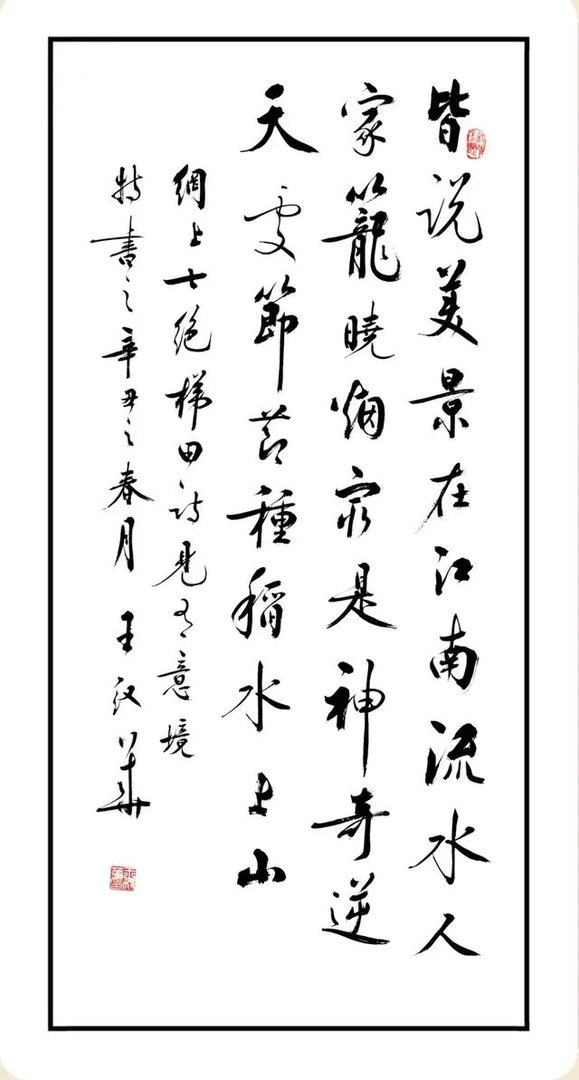 皆说美景在江南流水人
家籠曉烟最是神奇逆
天处節节種稻水上山
網上七絕梯田诗見有意境
特書之辛丑之春月 王汉華